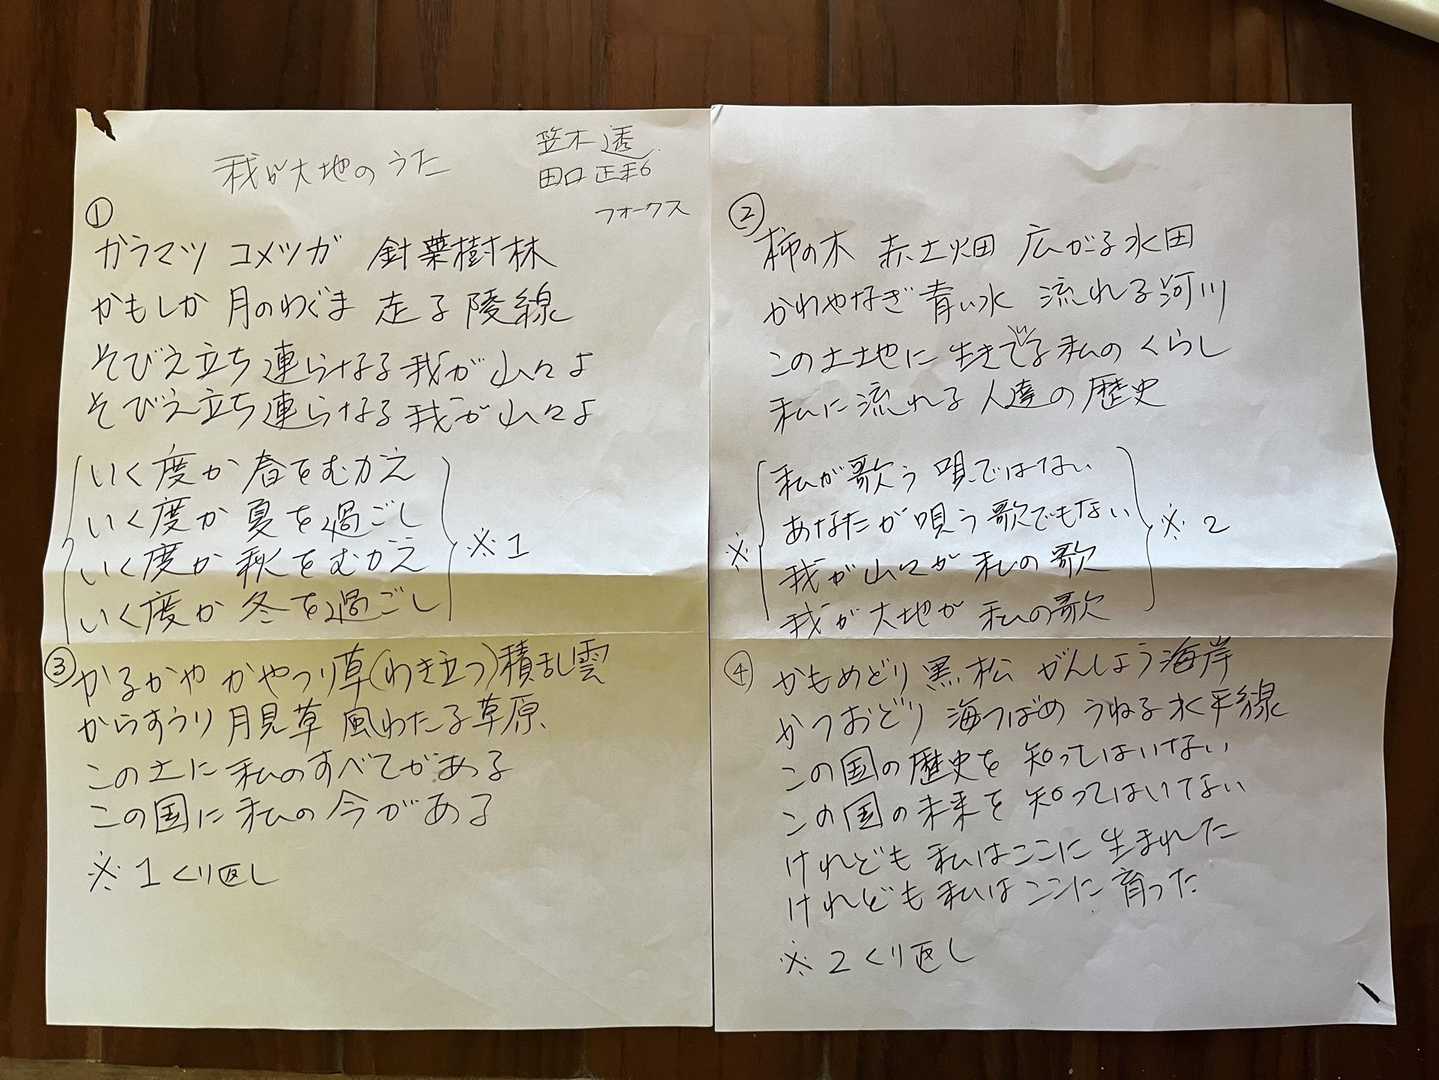 我が大地のうた
笠木透
田口正和
フォークス
①
カラマツ コメツガ 針葉樹林
かもしか 月のわぐま 走る陵線
そびえ立ち連らなる我が山々よ
そびえ立ち連らなる我が山々よ
いく度か春をむかえ
いく度か夏を過ごし
いく度か秋をむかえ
いく度か冬を過ごし
※1
③
かるかや かやつり草(わき立つ)積乱雲
からすうり 月見草 風わたる草原
この土に私のすべてがある
この国に私の今がある
※1くり返し
②
柿の木 赤土畑 広がる水田
かわやなぎ 青い水 流れる河川
この土地に生きでる私のくらし
私に流れる人達の歴史
※
私が歌う唄ではない
あなたが唄う歌でもない
我が山々が私の歌
我が大地が私の歌
※2
④
かもめどり 黒松 がんしょう海岸
かつおどり 海つばめ うねる水平線
この国の歴史を知ってはいない
この国の未来を知ってはいてない
けれども私はここに生まれた
けれども私はここに育った
※2くり返し